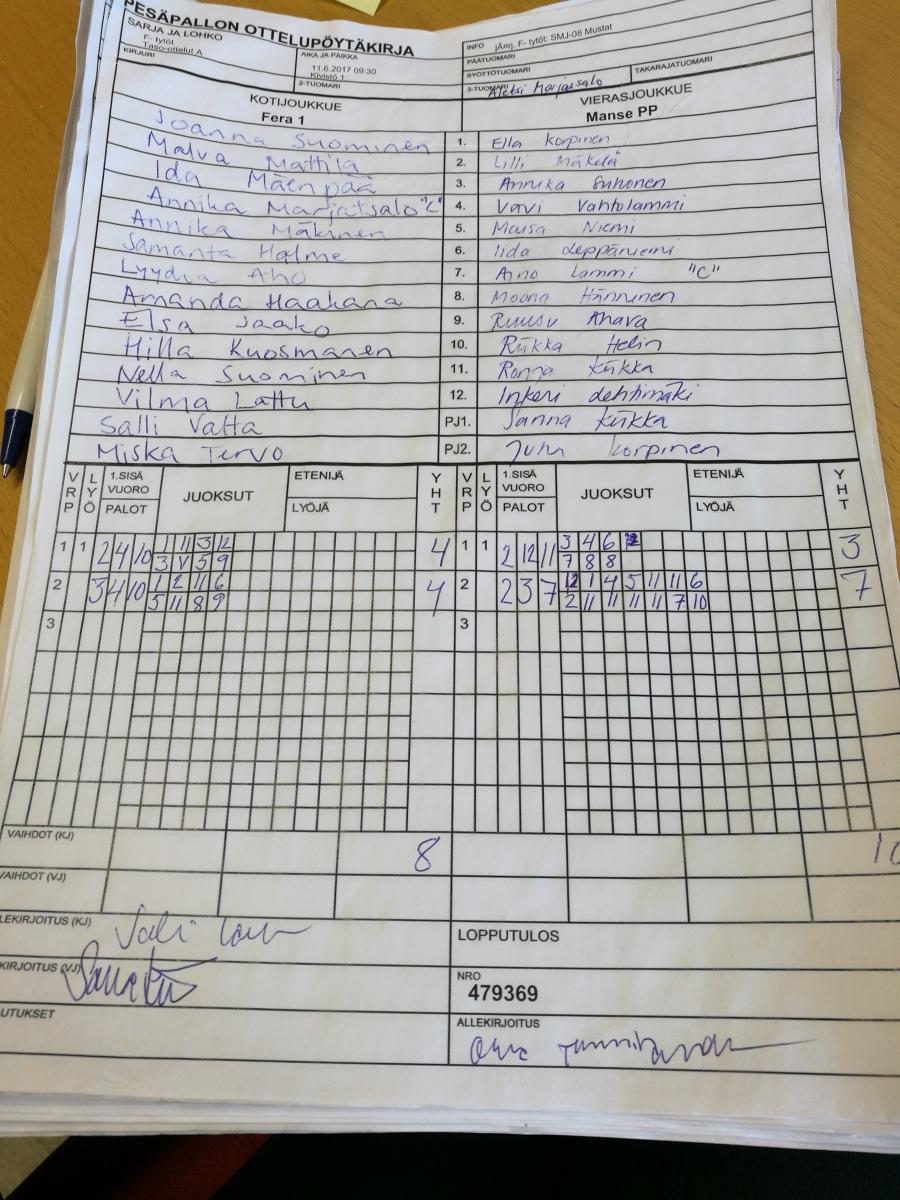 PESÄPALLON OTTELUPÖYTÄKIRJA
SARJA JA LOHKO
F- tytöt
Taso-ottelut A
AIKA JA PAIKKA
11.6.2017 09:30
Kivistö 1
INFO jÄerj. F- tytöt: SMJ-08 Mustat
PÄÄTUOMARI
KIRJURI
2-TUOMARI
SYÖTTÖTUOMARI
TAKARAJATUOMARI
3-TUOMARI Aleksi Marjassalo
KOTIJOUKKUE
Fera 1
VIERASJOUKKUE
Manse PP
Joanna Suominen 1. Ella Korpinen
Malva Mattila 2. Lilli Mäkelä
Ida Mäenpää 3. Annika Suhonen
Annika Marjatsalo "C" 4. Vahtolammi
Annika Mäkinen 5. Niemi
Samanta Halme 6. Iida
Lyydia Aho 7. Aino Lammi "C"
Amanda Haakana 8. Moona Hänninen
Elsa Jaako 9. Ruusu Ahava
Hilla Kuosmanen 10. Riikka Helin
Nella Suominen 11. Ronja Kiikka
Vilma Lattu 12. Inkeri Lehtimäki
Salli Valta PJ1. Sanna Kiikka
Miska Tervo PJ2. Juha Korpinen
VRP LYÖ 1.SISÄ VUORO PALOT JUOKSUT ETENIJÄ LYÖJÄ YHT VRP LYÖ 1.SISÄ VUORO PALOT JUOKSUT ETENIJÄ LYÖJÄ YHT
1 1 2 4 10 1 11 3 12 4 1 1 2 12 11 3 4 6 3
3 V 5 9 7 8 8
2 3 4 10 1 2 11 6 4 2 2 3 7 12 1 4 5 11 11 6 7
5 11 8 9 2 11 11 11 11 7 10
3 3
VAIHDOT (KJ) 8 10
VAIHDOT (VJ)
LEKIRJOITUS (KJ)
LOPPUTULOS
KIRJOITUS (VJ)
NRO
479369
UTUKSET
ALLEKIRJOITUS